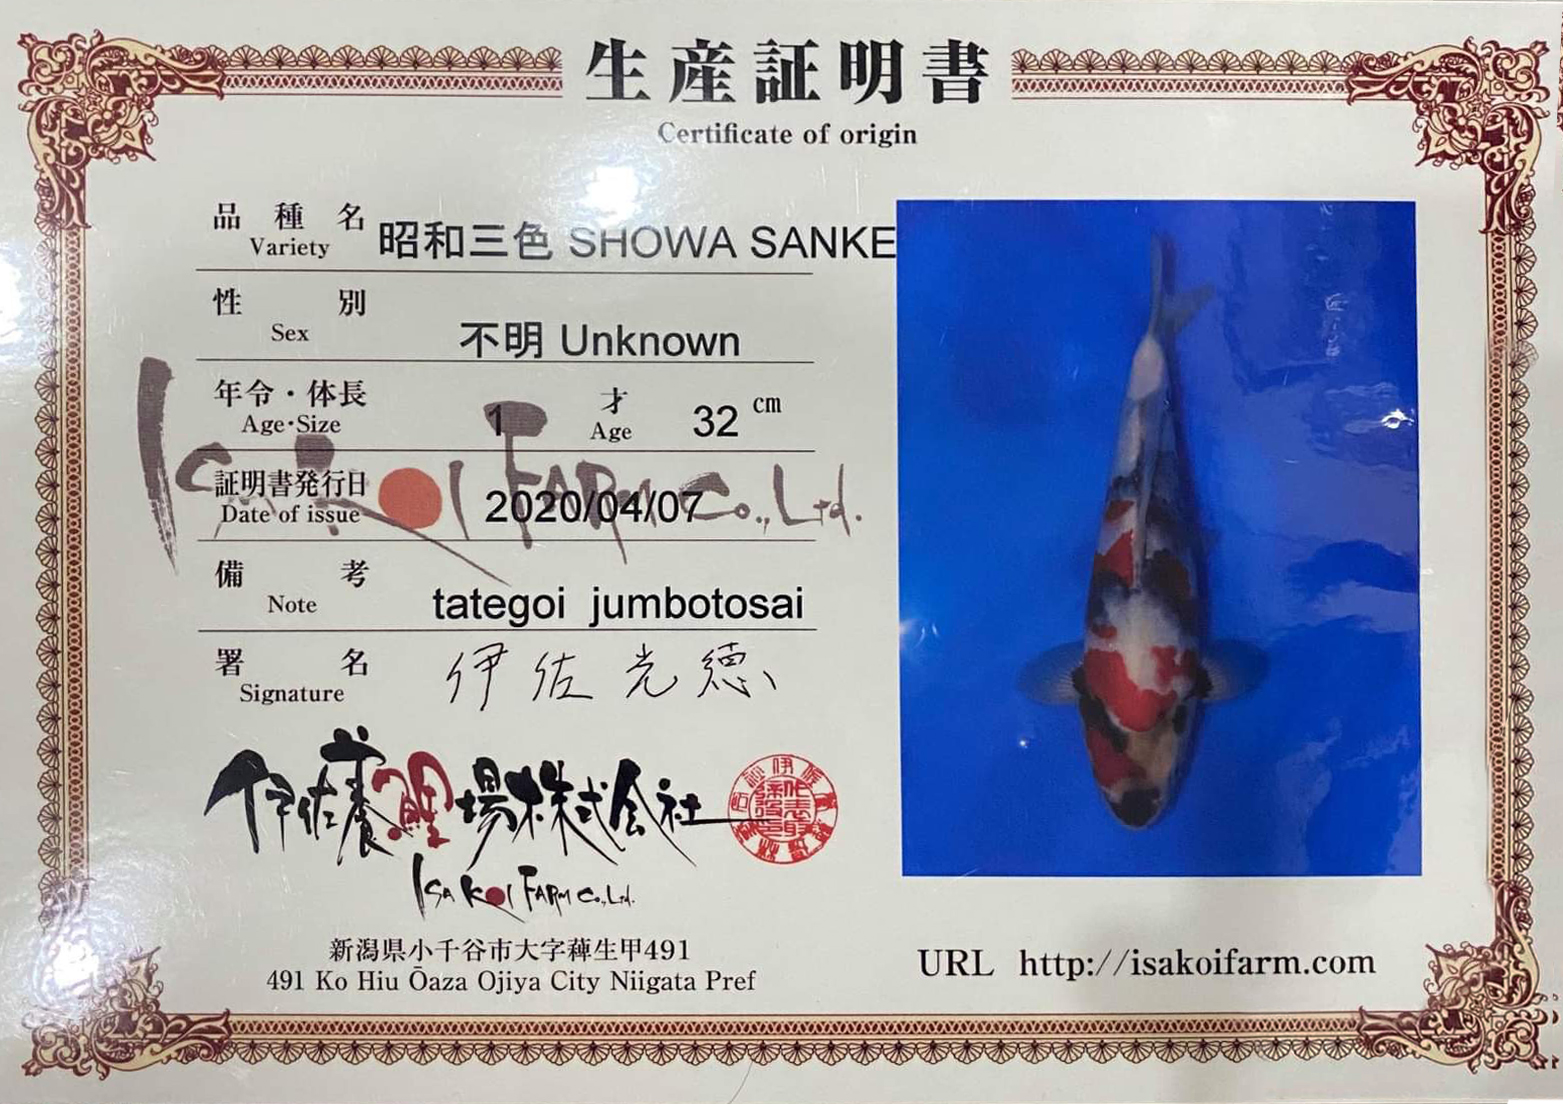 生産証明書
Certificate of origin
品種名 昭和三色 SHOWA SANKE
Variety
性別 不明 Unknown
Sex
年令・体長 1 才 32 cm
Age・Size Age
証明書発行日 2020/04/07
Date of issue
ISA KOI FARM Co., Ltd.
備考 tategoi jumbotosai
Note
署名 伊佐光徳
Signature
伊佐養鯉場株式会社
ISA KOI FARM Co., Ltd.
新潟県小千谷市大字薭生甲491
491 Ko Hiu Ōaza Ojiya City Niigata Pref
URL http://isakoifarm.com